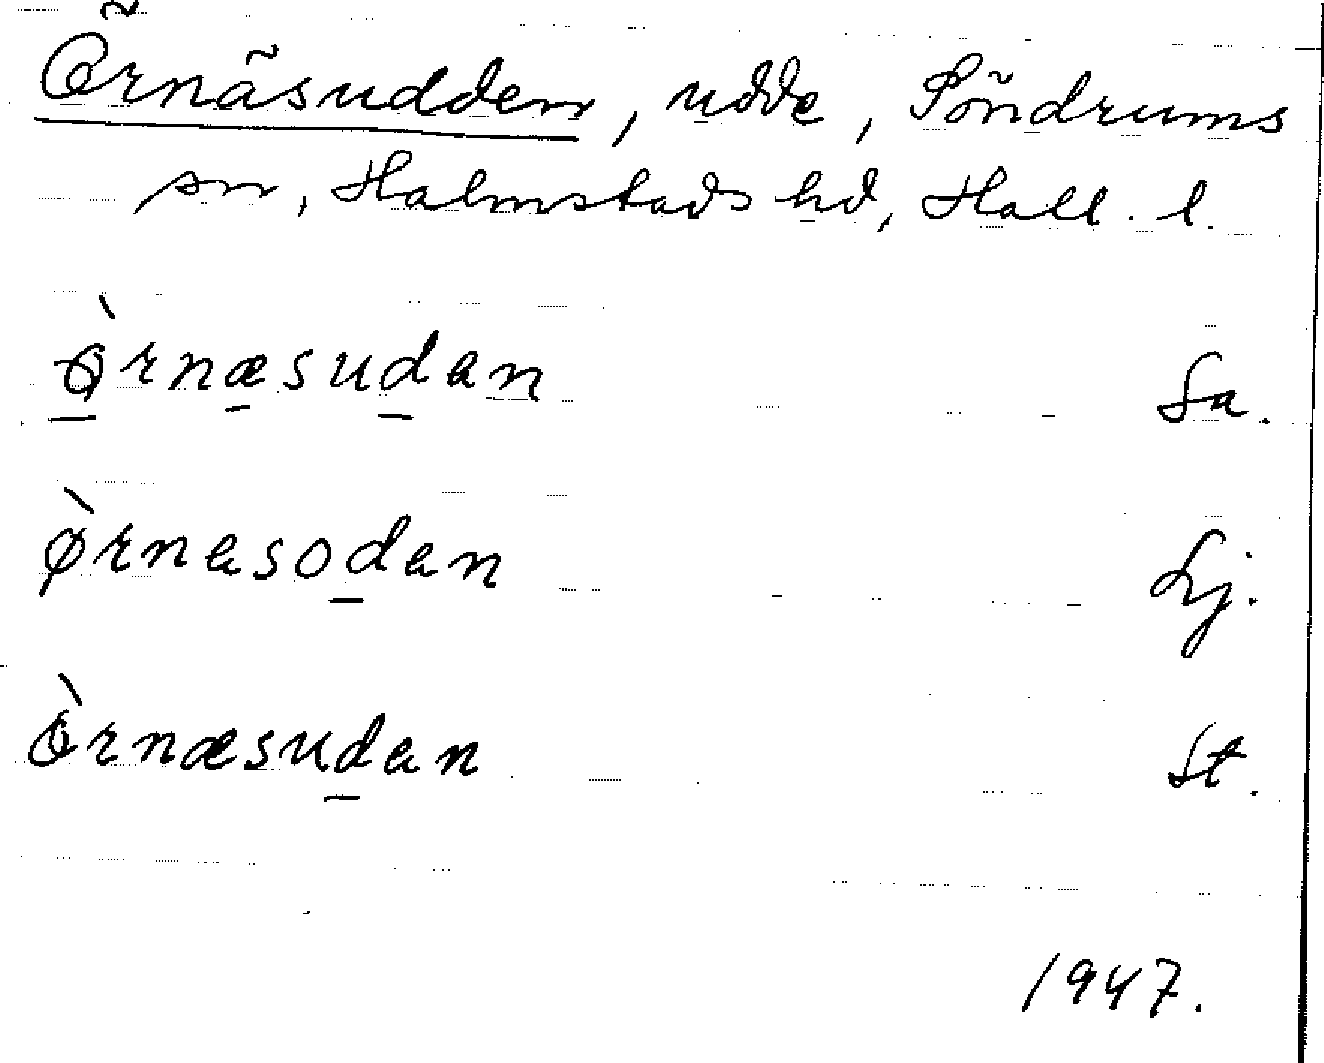 Örnäsudden, udde, Söndrums
sn, Halmstads hd, Hall. l.
Ꟁ̀rnæsudan Sa.
ø̀rnasodan Lj.
ὸrnæsudan St.
1947.